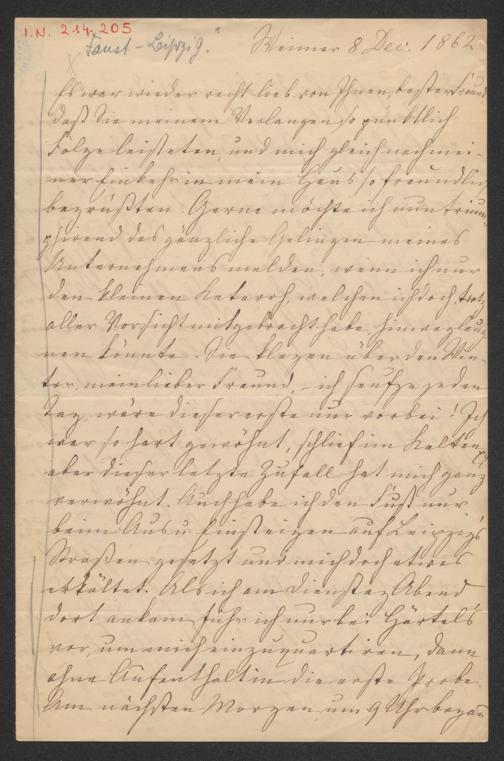 I.N. 214.205
"Faust-Leipzig"
Weimar 8 Dec. 1862
Es war wieder recht lieb von Ihnen, bester Freund
daß Sie meinem Verlangen so pünktlich
Folge leisteten, und mich gleich nach mei-
ner Einkehr in mein Haus so freundlich
begrüßten. Gerne möchte ich nun trium-
phirend das gänzliche Gelingen meines
Unternehmens melden, wenn ich nur
den kleinen Katarrh, welchen ich doch trotz
aller Vorsicht mitgebracht habe hinwegläug-
nen könnte. Sie klagen über den Win-
ter, mein lieber Freund, – ich seufze jeden
Tag, wäre dieser erste nur vorbei! Ich
war so hart gewöhnt, schlief im Kalten
aber dieser letzte Zufall hat mich ganz
verwöhnt. Auch habe ich den Fuß nur
beim Aus u. Einsteigen auf Leipzig's
Straßen gesetzt und mich doch etwas
erkältet. Als ich am Dienstag Abend
dort ankam fuhr ich nur bei Härtel's
vor, um mich einzuquartiren, dann
ohne Aufenthalt in die erste Probe.
Am nächsten Morgen um 9 Uhr begann